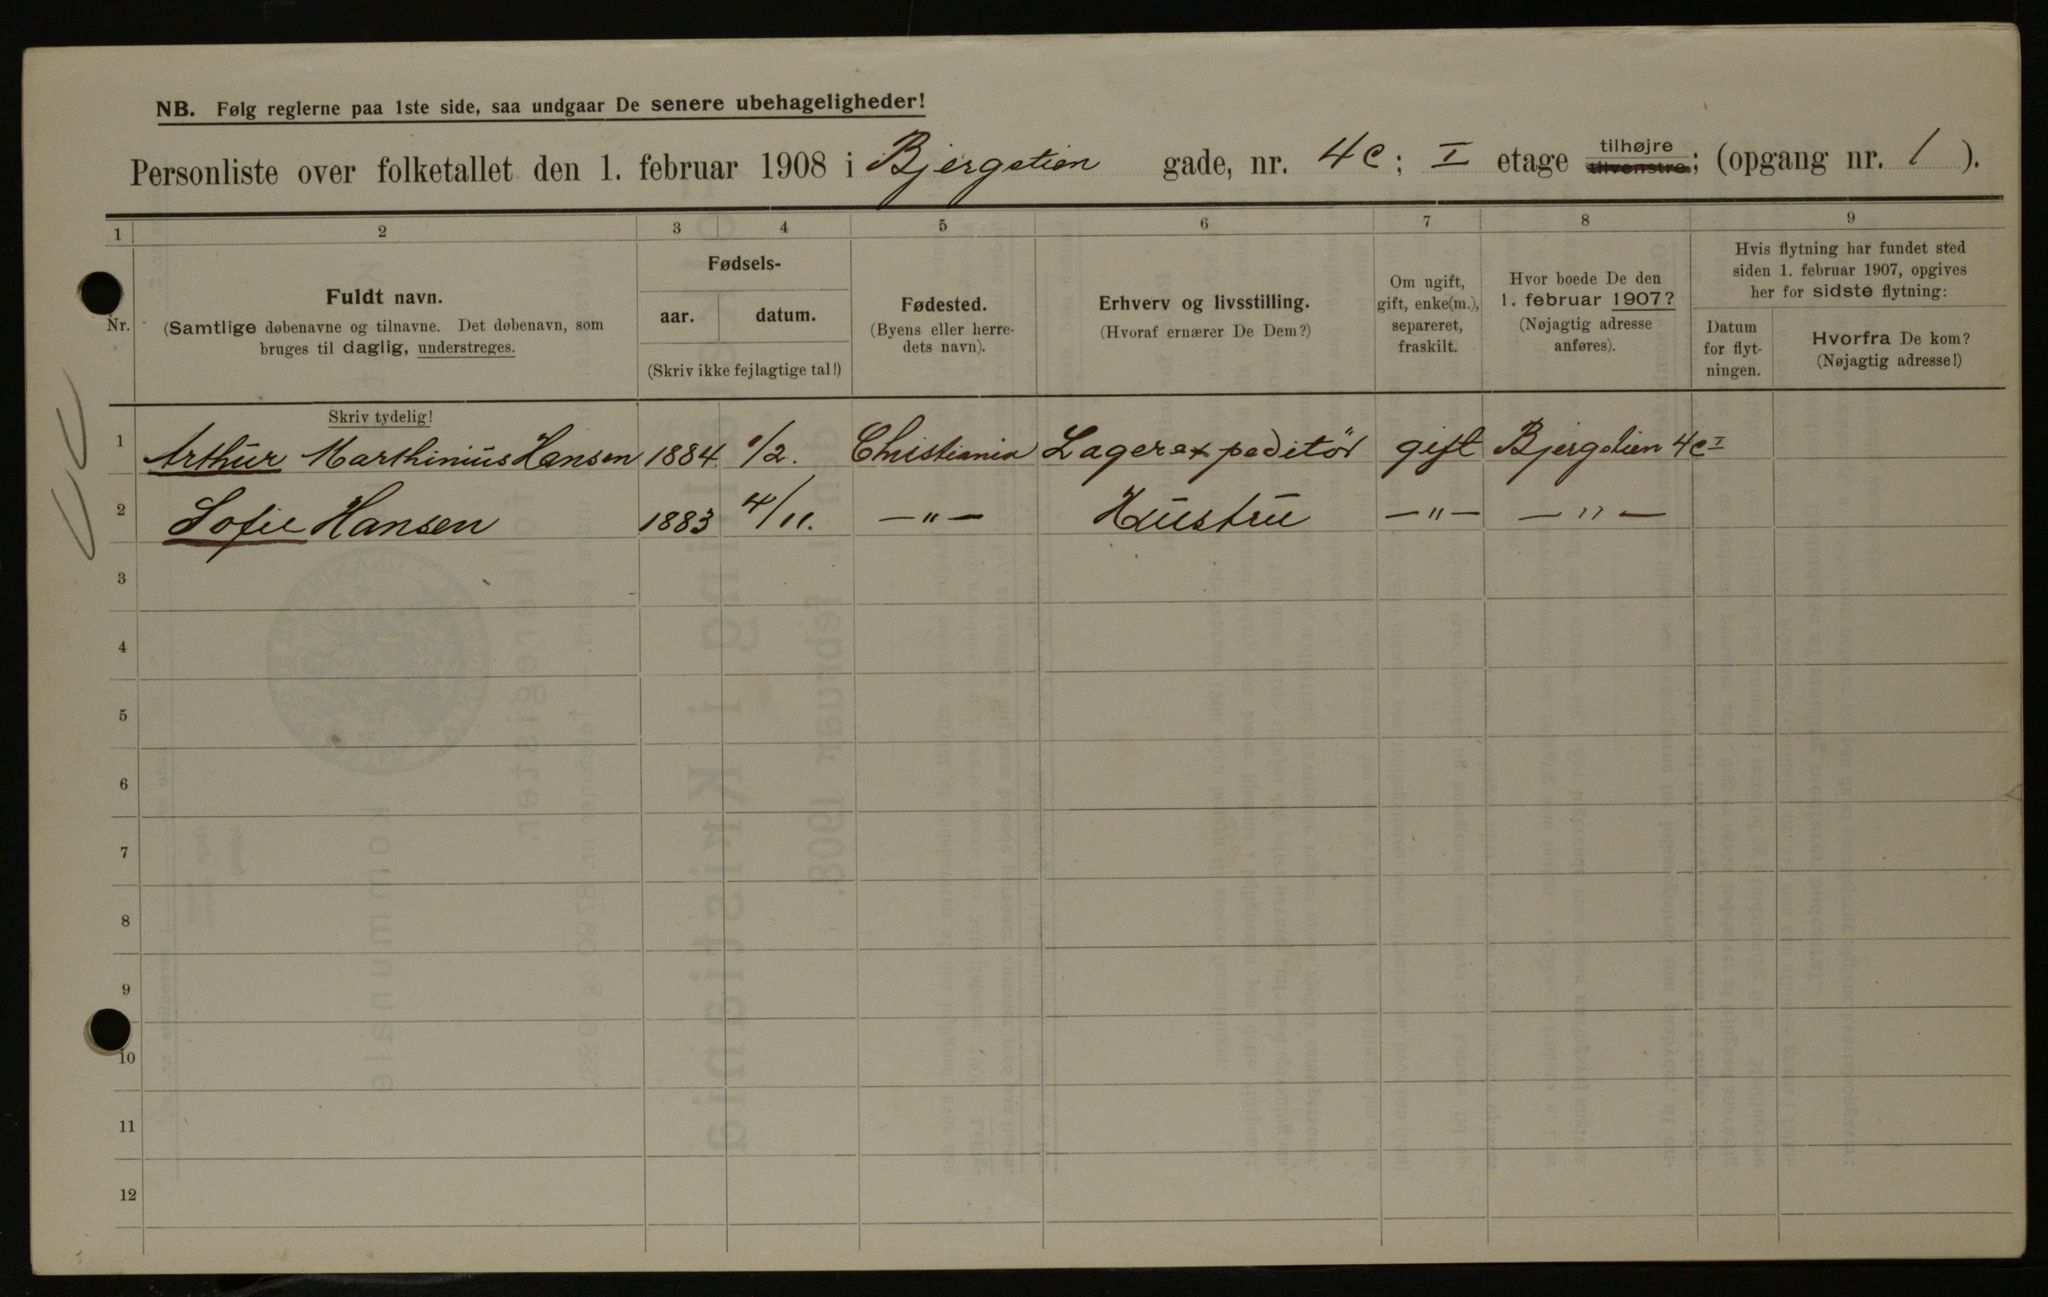 NB. Følg reglerne paa 1ste side, saa undgaar De senere ubehageligheder!
Personliste over folketallet den 1. februar 1908 i Bjergstien gade, nr. 4c; I etage tilhøjre tilvenstre; (opgang nr. 1).
1 2 3 4 5 6 7 8 9
Nr.
Fuldt navn.
(Samtlige døbenavne og tilnavne. Det døbenavn, som
bruges til daglig, understreges.
Fødsels-
aar. datum.
(Skriv ikke fejlagtige tal!)
Fødested.
(Byens eller herre-
dets navn).
Erhverv og livsstilling.
(Hvoraf ernærer De Dem?)
Om ugift,
gift, enke(m.),
separeret,
fraskilt.
Hvor boede De den
1. februar 1907?
(Nøjagtig adresse
anføres).
Hvis flytning har fundet sted
siden 1. februar 1907, opgives
her for sidste flytning:
Datum
for flyt-
ningen.
Hvorfra De kom?
(Nøjagtig adresse!)
Skriv tydelig!
1 Arthur Marthinius Hansen 1884 1/2. Christiania Lagerexpeditör gift Bjergstien 4c I
2 Sofie Hansen 1883 4/11. —"— Hustru —"— —"—
3
4
5
6
7
8
9
10
11
12